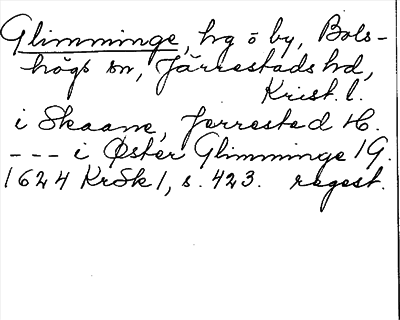 Glimminge, hg o by, Bols-
högs sn, Järrestads hd,
Krist. l.
i Skaane, Jerrested H.
--- i Øster Glimminge 1 G.
1624 KrSk 1, s. 423. regest.